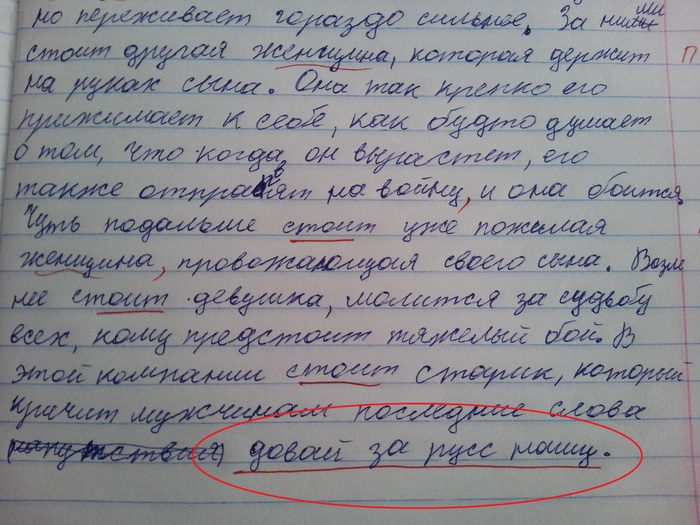 но переживает гораздо сильнее. За ними
стоит другая женщина, которая держит П
на руках сына. Она так крепко его
прижимает к себе, как будто думает
о том, что когда он вырастет, его
также отправят на войну, и она боится.
Чуть подальше стоит уже пожилая
женщина, провожающая своего сына. Возле
нее стоит девушка, молится за судьбу
всех, кому предстоит тяжелый бой. В
этой компании стоит старик, который
кричит мужчинам последние слова
довай за русс нашу.